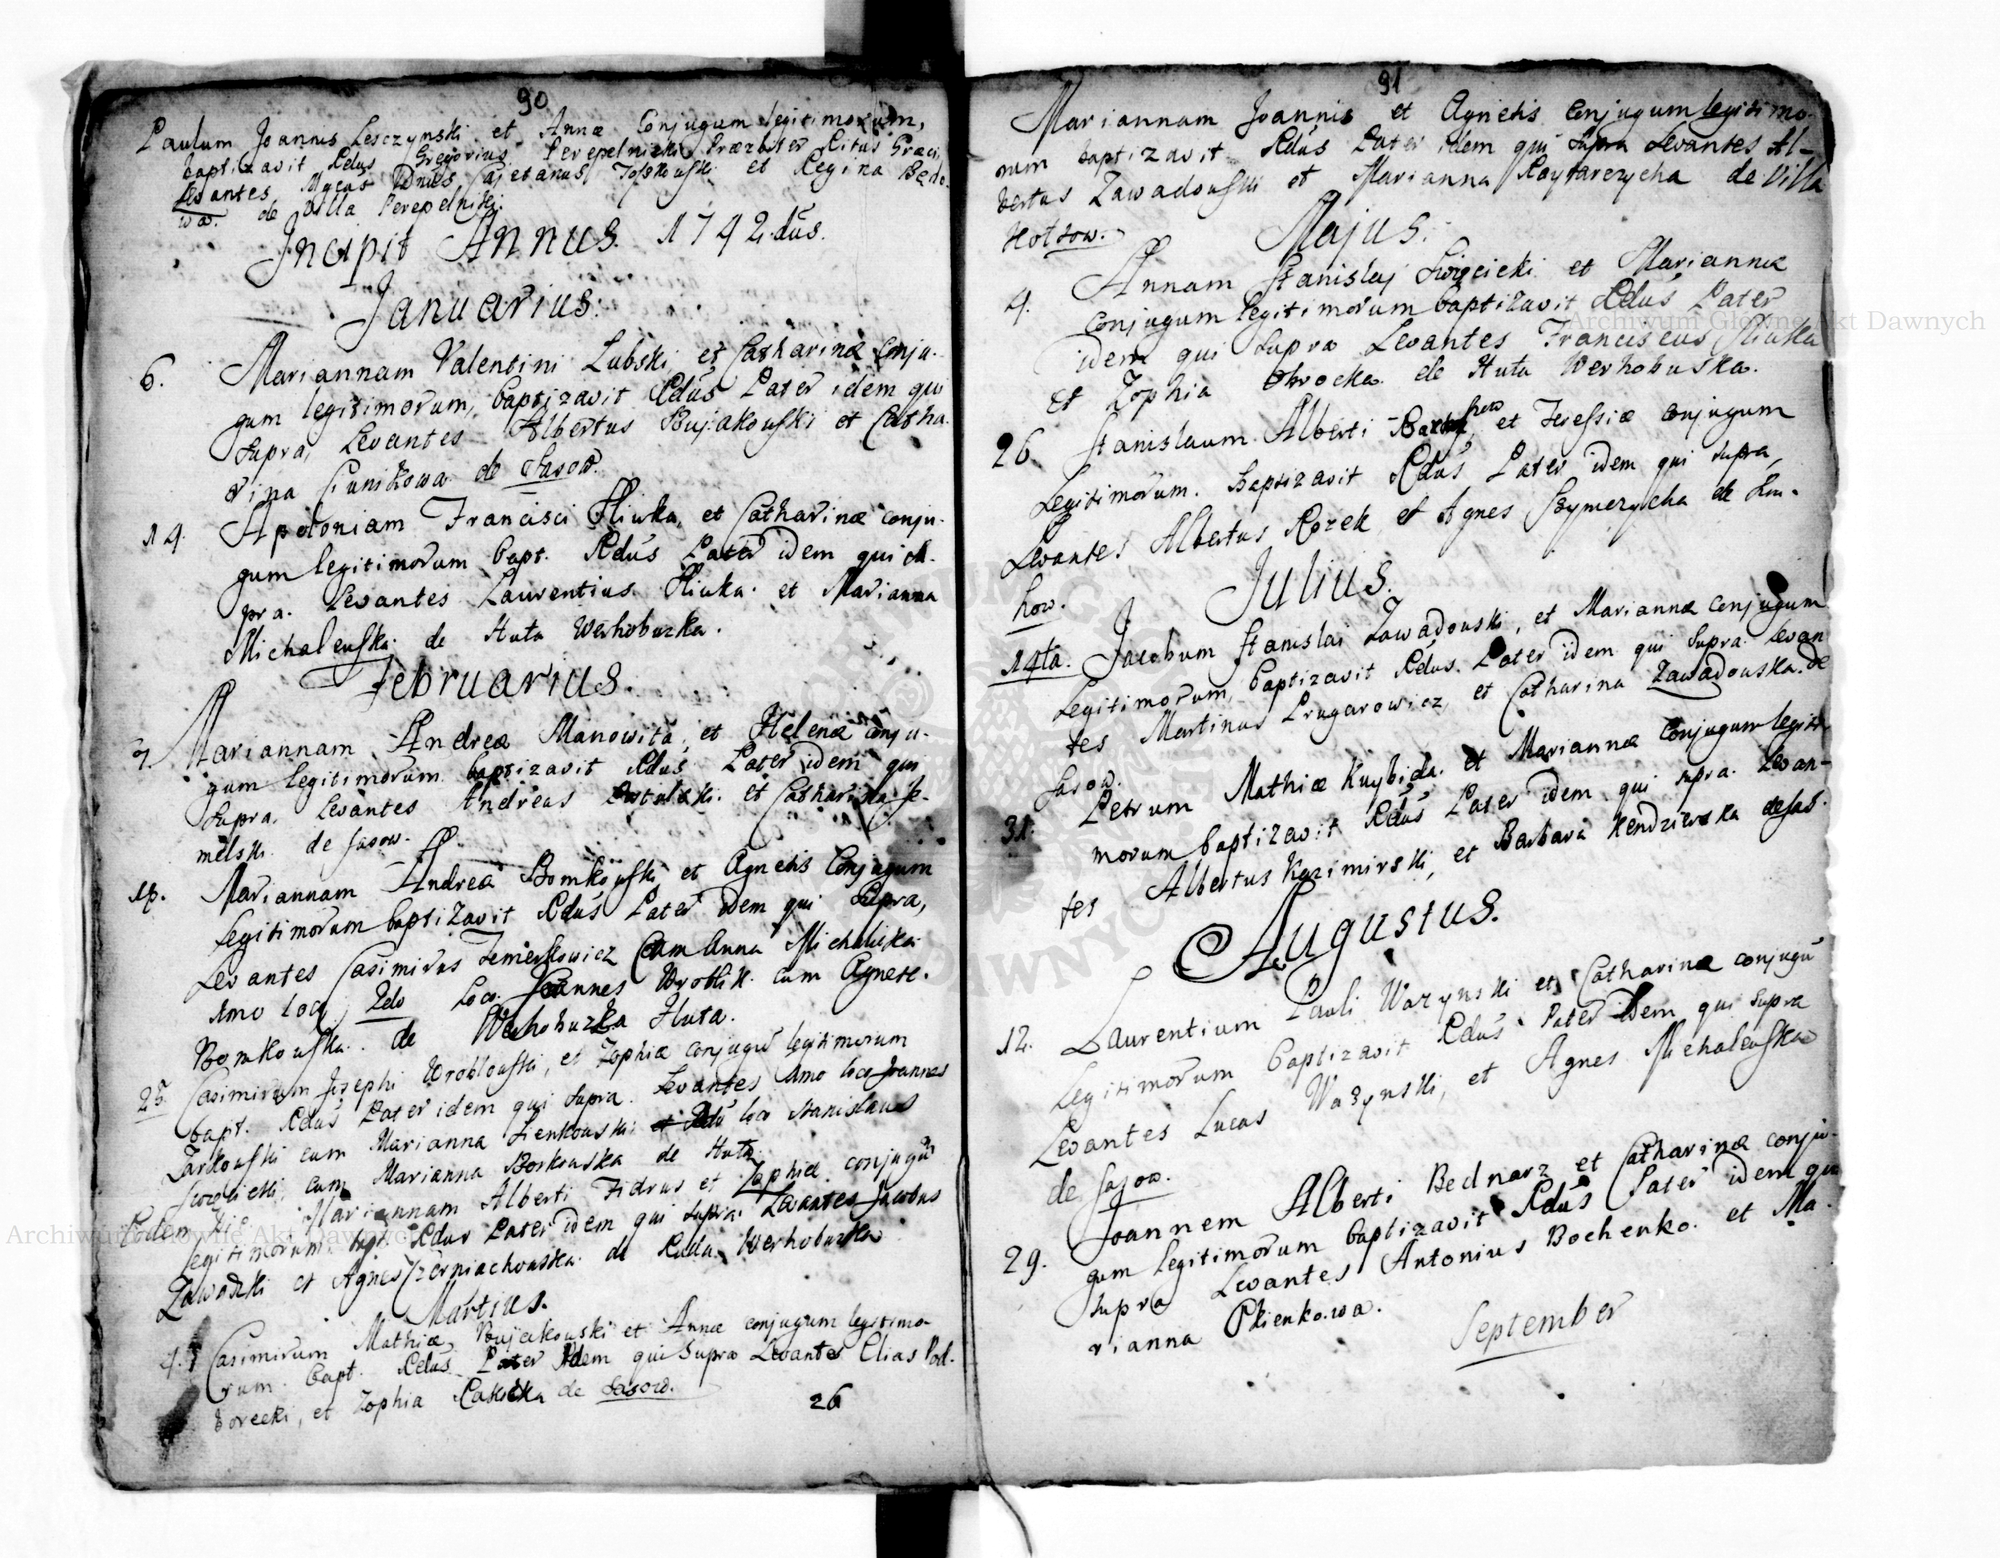 90
Paulum Joannis Lesczynski et Annæ Conjugum legitimorum,
baptizavit Rdus Gregorius Perepelnicki Præzbiter Ritus Græci,
Levantes Mgcus Dnus Cajetanus et Regina Bede-
wa. de Villa Perepelniki.
Incipit Annus. 1742.dus.
Januarius.
6. Mariannam Valentini Lubski et Catharinæ Conju-
gum legitimorum, baptizavit Rdus Pater idem qui
supra, Levantes Albertus Bujakouski et Catha-
rina Cunikowa de Sasow.
14. Apoloniam Francisci Sliwka, et Catharinæ conju-
gum legitimorum bapt. Rdus Pater idem qui su-
pra. Levantes Laurentius Sliwka. et Marianna
Michaleuska de Huta Werhobuzka.
Februarius.
Mariannam Andreæ Manowita, et Helenæ conju-
gum legitimorum baptizavit Rdus Pater idem qui
supra, Levantes Andreas et Catharina Se-
melski de Sasow.
Mariannam Andreæ Bomkouski et Agnetis Conjugum
legitimorum baptizavit Rdus Pater idem qui supra,
Levantes Casimirus cum Anna Michalska
imo loco, 2do Loco Joannes cum Agnete
Bomkouska. de Werhobuzka Huta.
25 Casimirum Josephi Wroblouski, et Zophiæ conjugū legitimorum
bapt. Rdus Pater idem qui supra. Levantes imo loco Joannes
Zarkouski cum Marianna Zienkouski et 2do loco Stanislaus
cum Marianna Borkouska de Huta.
Eodem Die Mariannam Alberti Fidrus et Zophiæ conjugū
legitimorum Rdus Pater idem qui supra Levantes Jacobus
Zawadzki et Agnes Czerniachouska de Ruda Werhobuzka
Martius.
4. Casimirum Mathiæ Bujakouski et Annæ conjugum legitimo-
rum. bapt. Rdus Pater idem qui supra Levantes Elias Pod-
horecki, et Zophia de Sasow.
26
91
Mariannam Joannis et Agnetis Conjugum legitimo-
rum baptizavit Rdus Pater idem qui supra Levantes Al-
bertus Zawadouski et Marianna de Villa
Majus.
4. Annam Stanislaj Swięcicki et Mariannæ
conjugum legitimorum baptizavit Rdus Pater
idem qui supra Levantes Franciscus Sliwka
et Zophia de Huta Werhobuska.
26 Stanislaum. Alberti et Teressiæ conjugum
Legitimorum. Baptizavit Rdus Pater idem qui supra,
Levantes Albertus Rozek et Agnes Szymczycha de
how.
Julius.
14ta. Jacobum Stanislai Zawadouski, et Mariannæ conjugum
Legitimorum, baptizavit Rdus Pater idem qui supra. Levan
tes Martinus Prugarowicz, et Catharina Zawadouska. de
Sasow.
31. Petrum Mathiæ Kuybida. et Mariannæ Conjugum legiti-
morum baptizavit Rdus Pater idem qui supra. Levan-
tes Albertus Kazimirski, et Barbara Kendzierska de Sas.
Augustus.
12. Laurentium Pauli Wazynski et Catharinæ conjugū
Legitimorum baptizavit Rdus Pater idem qui supra
Levantes Lucas Wazynski, et Agnes Michaleuska
de Sasow.
29. Joannem Alberti Bednarz et Catharinæ conju-
gum Legitimorum baptizavit Rdus Pater idem qui
supra Levantes Antonius Bochenko. et Ma-
rianna Plienkowa.
September
Archiwum Główne Akt Dawnych
Archiwum Główne Akt Dawnych